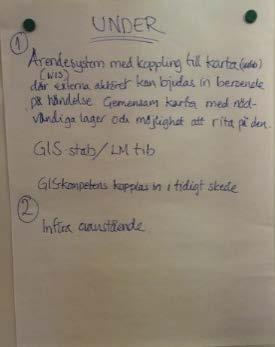 UNDER
1 Ärendesystem med koppling till karta
(WIS)
där externa aktörer kan bjudas in beroende
på händelse Gemensam karta med nöd-
vändiga lager och möjlighet att rita på den.
GIS stab/LM tib
GIS-kompetens kopplas in i tidigt skede
2
Infra ovanstående